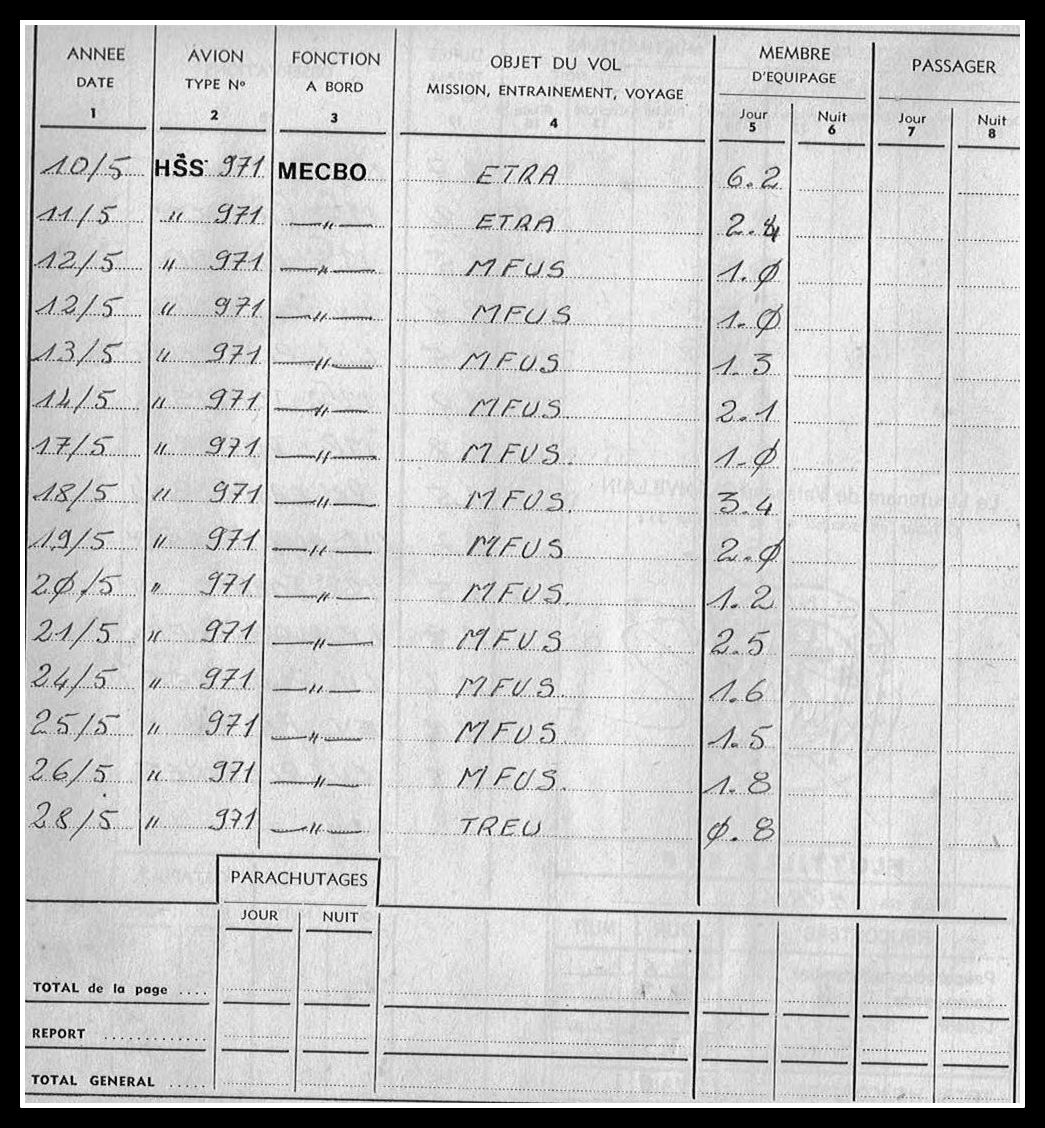 ANNEE AVION FONCTION OBJET DU VOL MEMBRE PASSAGER
DATE TYPE No A BORD MISSION, ENTRAINEMENT, VOYAGE D'EQUIPAGE
Jour Nuit Jour Nuit
1 2 3 4 5 6 7 8
10/5 HSS 971 MECBO ETRA 6.2
11/5 " 971 —"— ETRA 2.4
12/5 " 971 —"— MFUS 1.Ø
12/5 " 971 —"— MFUS 1.Ø
13/5 " 971 —"— MFUS 1.3
14/5 " 971 —"— MFUS 2.1
17/5 " 971 —"— MFUS. 1.Ø
18/5 " 971 —"— MFUS. 3.4
19/5 " 971 —"— MFUS 2.Ø
2Ø/5 " 971 —"— MFUS. 1.2
21/5 " 971 —"— MFUS 2.5
24/5 " 971 —"— MFUS. 1.6
25/5 " 971 —"— MFUS. 1.5
26/5 " 971 —"— MFUS. 1.8
28/5 " 971 —"— TREU Ø.8
PARACHUTAGES
JOUR NUIT
TOTAL de la page ....
REPORT ............
TOTAL GENERAL .....